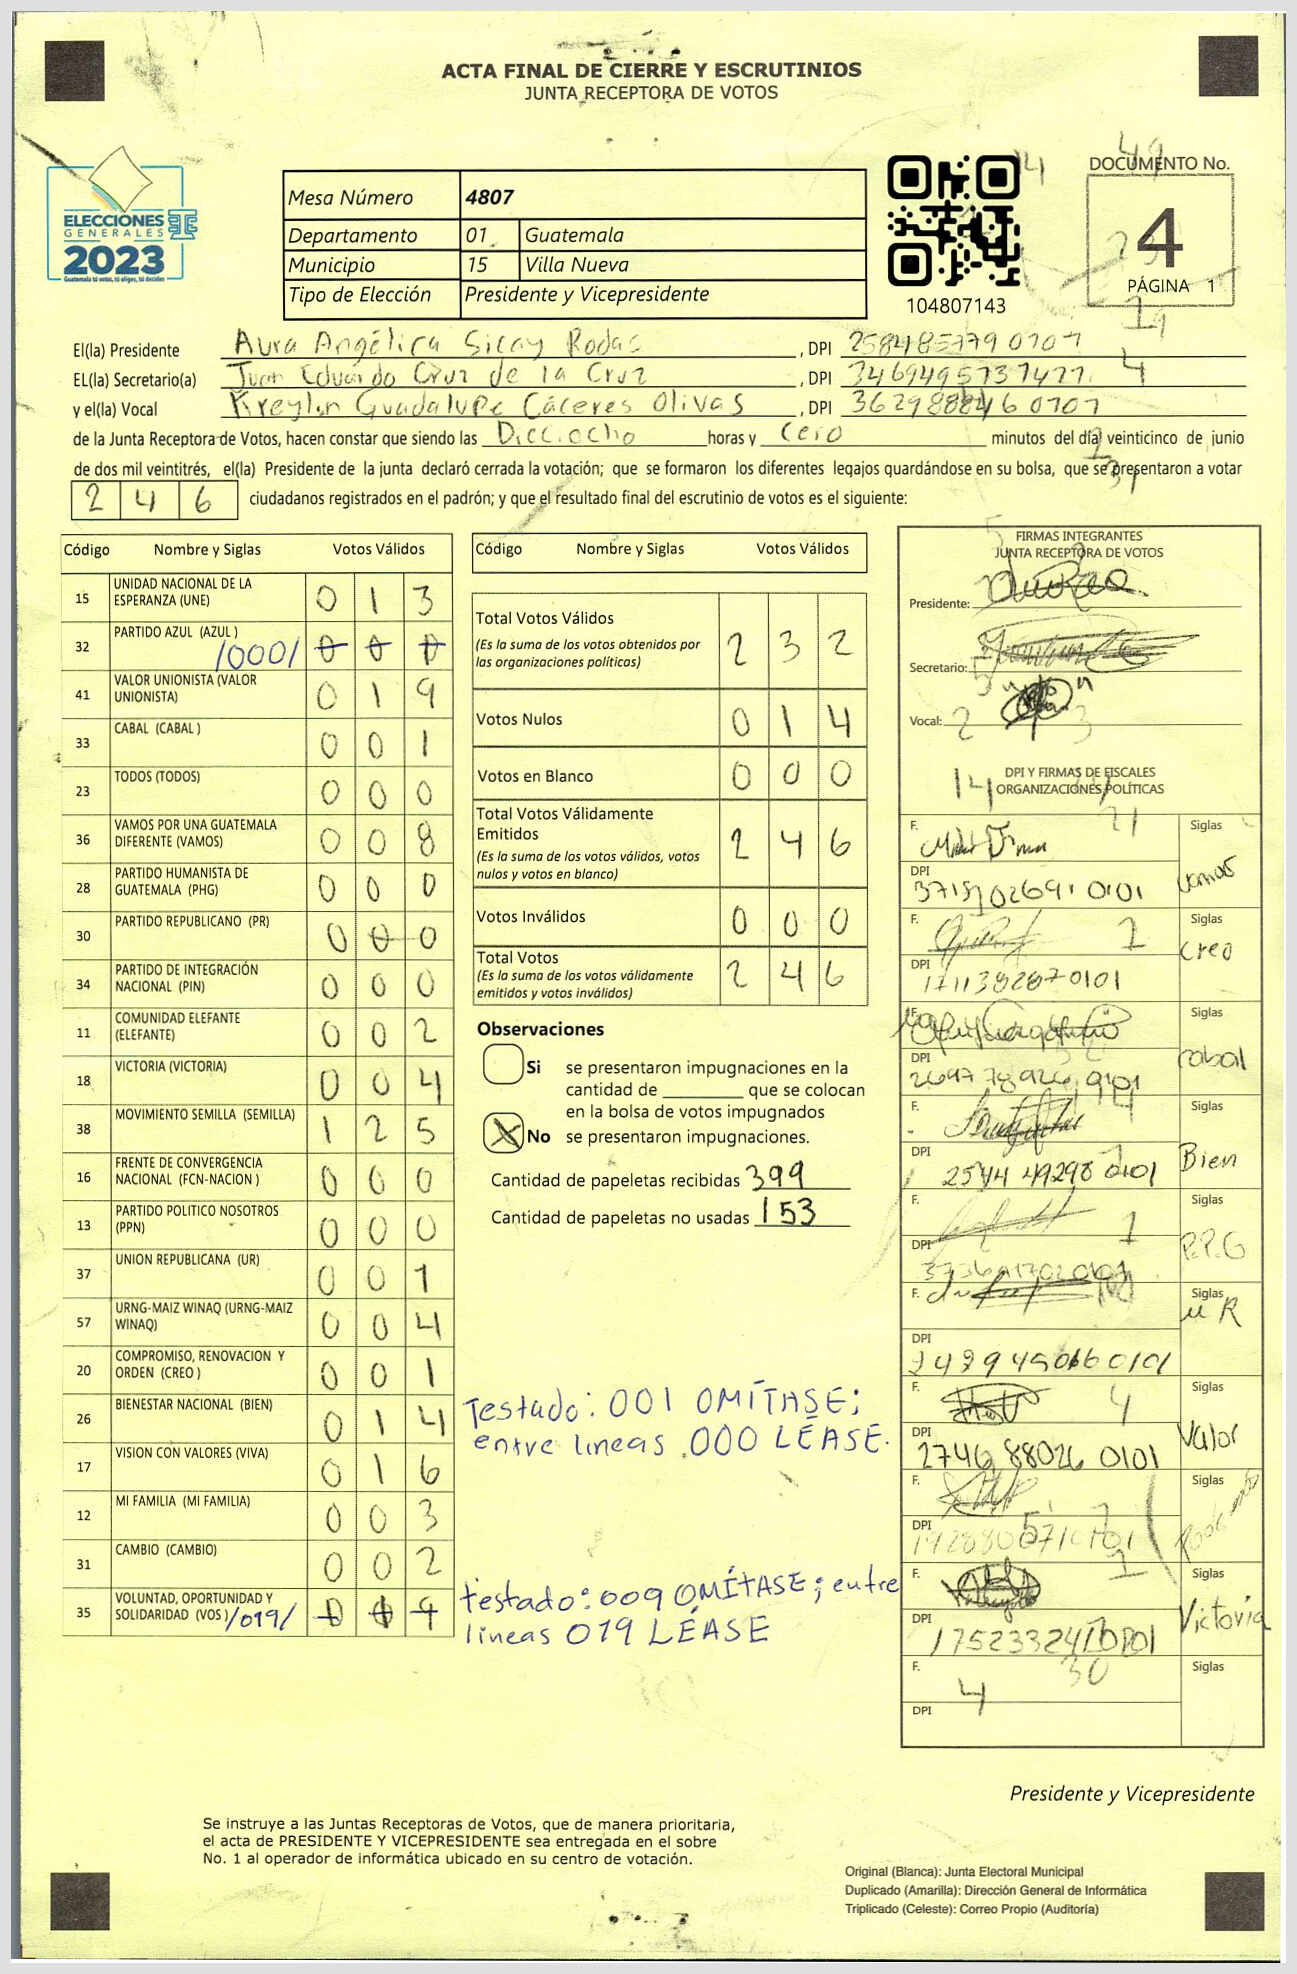 ACTA FINAL DE CIERRE Y ESCRUTINIOS
JUNTA RECEPTORA DE VOTOS
ELECCIONES
GENERALES
2023
Guatemala tú votas, tú eliges, tú decides
Mesa Número 4807
Departamento 01 Guatemala
Municipio 15 Villa Nueva
Tipo de Elección Presidente y Vicepresidente
104807143
DOCUMENTO No.
4
PÁGINA 1
El(la) Presidente Aura Angélica Sicay Rodas, DPI
EL(la) Secretario(a) Juan Eduardo Cruz de la Cruz, DPI
y el(la) Vocal Kreylin Guadalupe Cáceres Olivas, DPI
de la Junta Receptora de Votos, hacen constar que siendo las Dieciocho horas y Cero minutos del día veinticinco de junio
de dos mil veintitrés, el(la) Presidente de la junta declaró cerrada la votación; que se formaron los diferentes legajos quardándose en su bolsa, que se presentaron a votar
246 ciudadanos registrados en el padrón; y que el resultado final del escrutinio de votos es el siguiente:
Código Nombre y Siglas Votos Válidos
15 UNIDAD NACIONAL DE LA ESPERANZA (UNE) 013
32 PARTIDO AZUL (AZUL ) /000/
41 VALOR UNIONISTA (VALOR UNIONISTA) 019
33 CABAL (CABAL ) 001
23 TODOS (TODOS) 000
36 VAMOS POR UNA GUATEMALA DIFERENTE (VAMOS) 008
28 PARTIDO HUMANISTA DE GUATEMALA (PHG) 000
30 PARTIDO REPUBLICANO (PR) 000
34 PARTIDO DE INTEGRACIÓN NACIONAL (PIN) 000
11 COMUNIDAD ELEFANTE (ELEFANTE) 002
18 VICTORIA (VICTORIA) 004
38 MOVIMIENTO SEMILLA (SEMILLA) 125
16 FRENTE DE CONVERGENCIA NACIONAL (FCN-NACION ) 000
13 PARTIDO POLITICO NOSOTROS (PPN) 000
37 UNION REPUBLICANA (UR) 001
57 URNG-MAIZ WINAQ (URNG-MAIZ WINAQ) 004
20 COMPROMISO, RENOVACION Y ORDEN (CREO ) 001
26 BIENESTAR NACIONAL (BIEN) 014
17 VISION CON VALORES (VIVA) 016
12 MI FAMILIA (MI FAMILIA) 003
31 CAMBIO (CAMBIO) 002
35 VOLUNTAD, OPORTUNIDAD Y SOLIDARIDAD (VOS) /019/
Código Nombre y Siglas Votos Válidos
Total Votos Válidos 232
(Es la suma de los votos obtenidos por
las organizaciones políticas)
Votos Nulos 014
Votos en Blanco 000
Total Votos Válidamente
Emitidos 246
(Es la suma de los votos válidos, votos
nulos y votos en blanco)
Votos Inválidos 000
Total Votos 246
(Es la suma de los votos válidamente
emitidos y votos inválidos)
Observaciones
Si se presentaron impugnaciones en la
cantidad de ________ que se colocan
en la bolsa de votos impugnados
X No se presentaron impugnaciones.
Cantidad de papeletas recibidas 399
Cantidad de papeletas no usadas 153
Testado: 001 OMÍTASE;
entre lineas 000 LÉASE.
testado: 009 OMÍTASE; entre
lineas 019 LÉASE
FIRMAS INTEGRANTES
JUNTA RECEPTORA DE VOTOS
Presidente:
Secretario:
Vocal:
DPI Y FIRMAS DE FISCALES
ORGANIZACIONES POLÍTICAS
F. Siglas
DPI vamos
F. Siglas
Creo
DPI 171138287 0101
F. Siglas
DPI cabal
F. Siglas
DPI 2544 49298 0101 Bien
F. Siglas
DPI P.P.G
F. Siglas
UR
DPI
F. Siglas
DPI 2746 88026 0101 Valor
F. Siglas
DPI
F. Siglas
DPI Victoria
F. Siglas
DPI
Presidente y Vicepresidente
Se instruye a las Juntas Receptoras de Votos, que de manera prioritaria,
el acta de PRESIDENTE Y VICEPRESIDENTE sea entregada en el sobre
No. 1 al operador de informática ubicado en su centro de votación.
Original (Blanca): Junta Electoral Municipal
Duplicado (Amarilla): Dirección General de Informática
Triplicado (Celeste): Correo Propio (Auditoría)